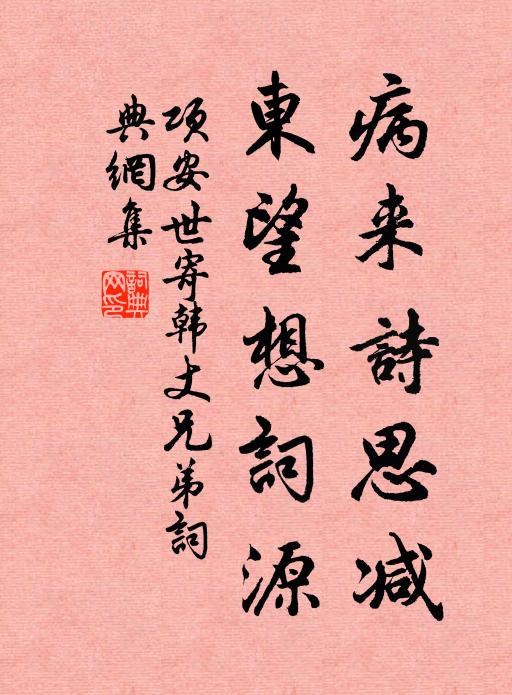 病来詩思减
東望想詞源
项安世寄韩丈兄弟詞
典網集
詞典
网印